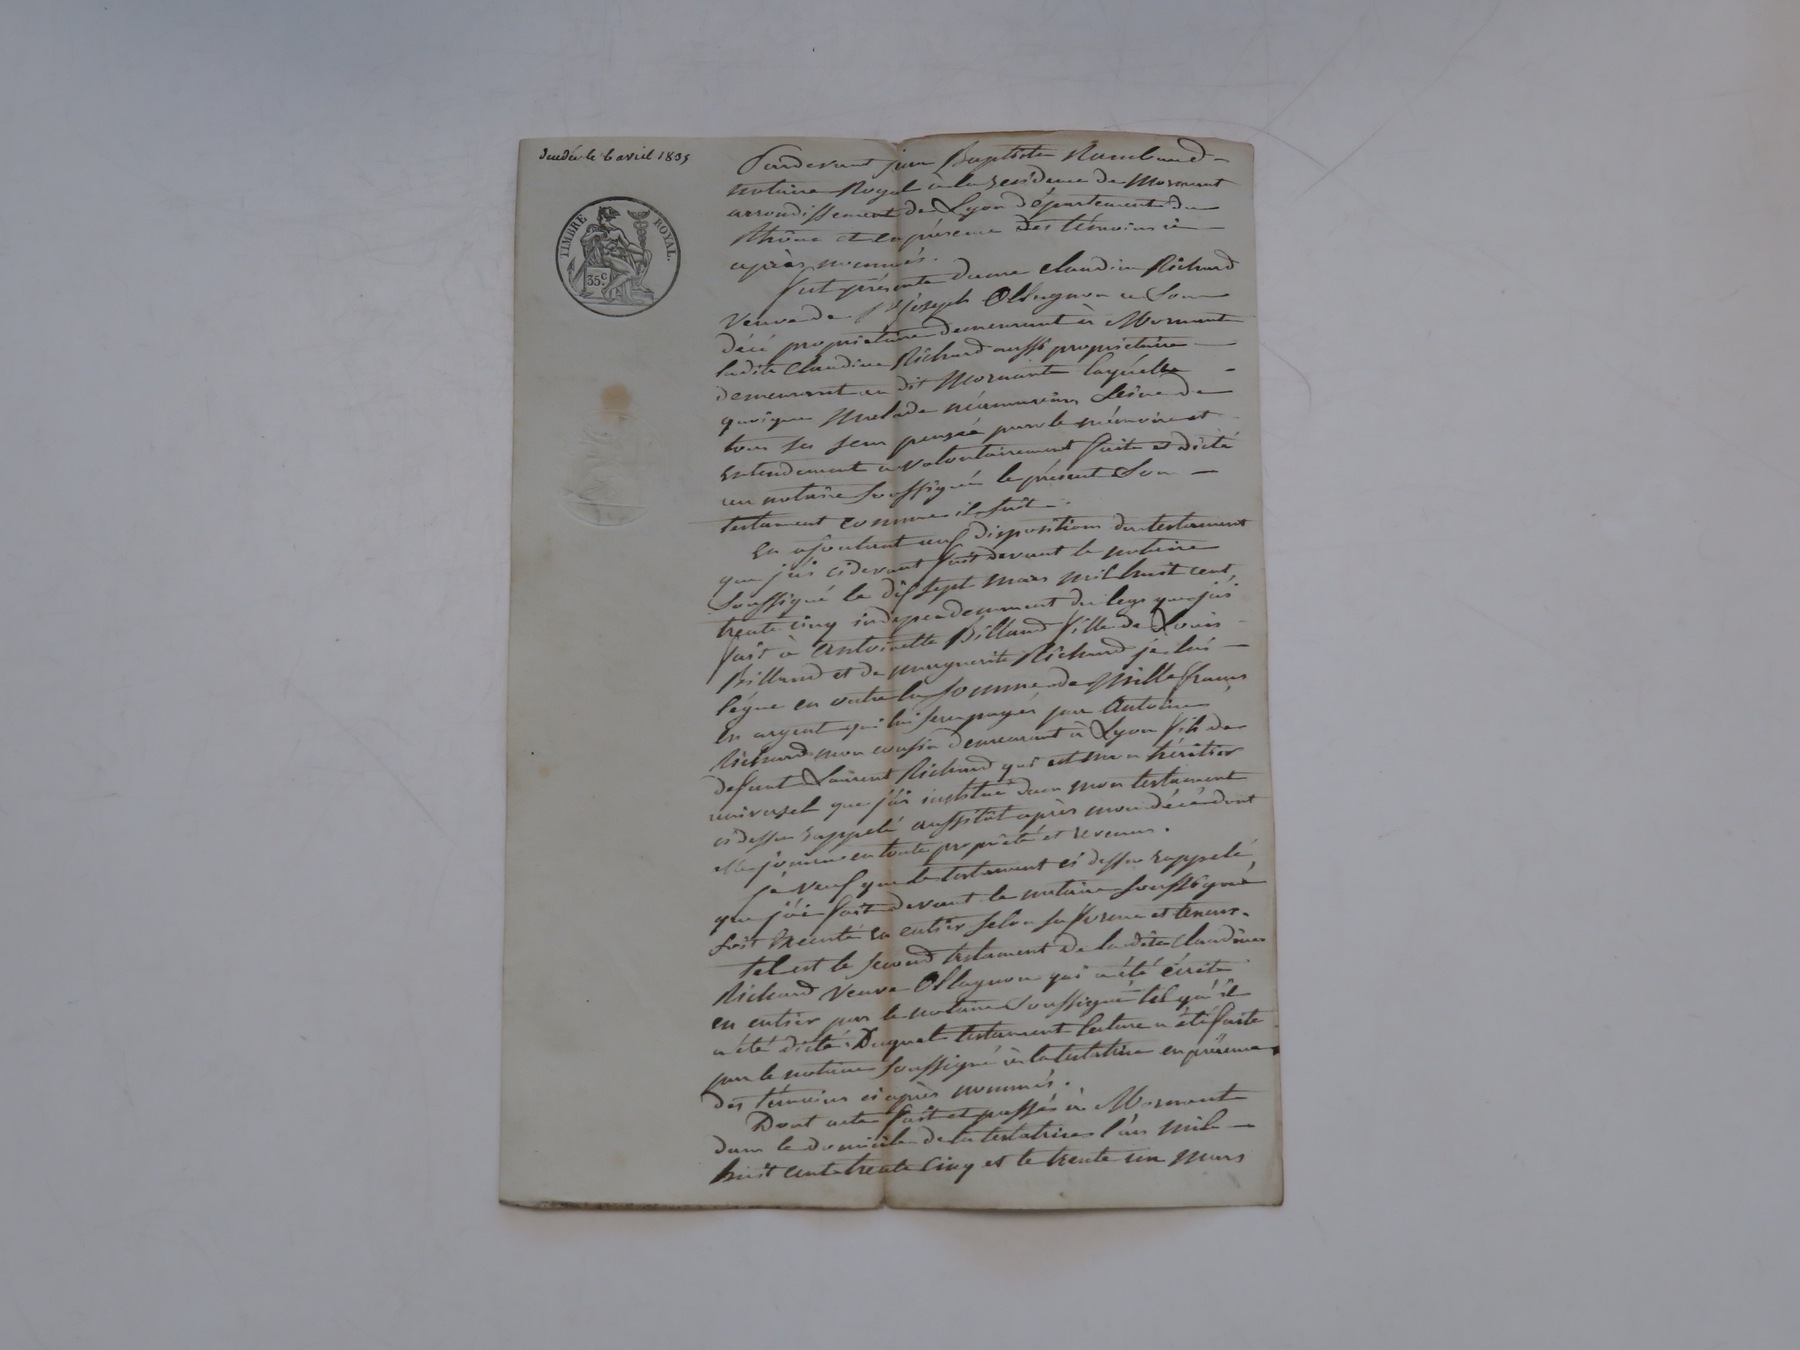 décédée le 6 avril 1835
TIMBRE ROYAL.
35 c.
Pardevant jean Baptiste Rambaud
notaire Royal à la residence de Mornant
arrondissement de Lyon département du
Rhône et en présence des témoins ci
après nommés.
fut présente dame Claudine Richard
veuve de Sr joseph Ollagnon a son
décé propriétaire demeurant à Mornant
ladite Claudine Richard aussi propriétaire
demeurant au dit Mornant laquelle
quoique malade néanmoins saine de
tous ses sens pensée parole mémoire et
entendement a volontairement fait et dicté
au notaire soussigné le présent son
testament comme il suit.
En ajoutant aux dispositions du testament
que j'ai cidevant fait devant le notaire
soussigné le dix sept mars mil huit cent
trente cinq indépendemment du legs que j'ai
fait à Antoinette Billaud fille de Louis
Billaud et de marguerite Richard je lui
légue en outre la somme de Mille francs
en argent qui lui sera payée par Antoine
Richard mon cousin demeurant à Lyon fils de
defunt Laurent Richard qui est mon héritier
universel que j'ai institué dans mon testament
ci dessus rappelé aussitôt après mon décé dont
elle jouira en toute propriété et revenus.
je veux que le testament ci dessus rappelé
que j'ai fait devant le notaire soussigné
soit executé en entier selon sa forme et teneur.
tel est le second testament de ladite Claudine
Richard veuve Ollagnon qui a été écrit
en entier par le notaire soussigné tel qu'il
a été dicté. Duquel testament lecture a été faite
par le notaire soussigné à la testatrice en présence
des témoins ci après nommés.
Dont acte fait et passé à Mornant
dans le domicile de la testatrice l'an mil
huit cent trente cinq et le trente un Mars